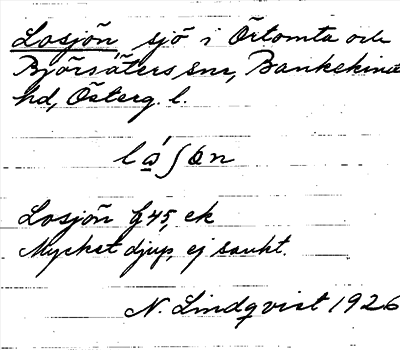 Losjön, sjö i Örtomta och
Björsäters snr, Bankekinds
hd, Österg. l.
Losjön G 45, ek
Mycket djup, ej sankt.
N. Lindqvist 1926